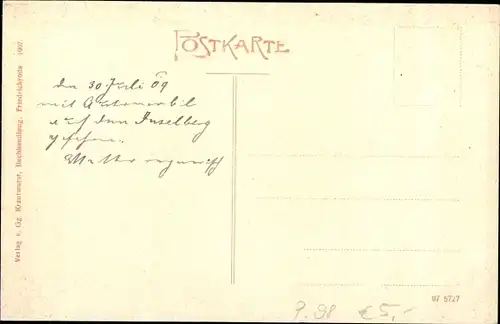 POSTKARTE
den 30 Juli 09
mit Automobil
auf den Inselberg
gefahren.
Wetter regnerisch
Verlag v. Gg. Krautwurst, Buchhandlung, Friedrichroda 1907.
07 5727
P. 98 € 5,-